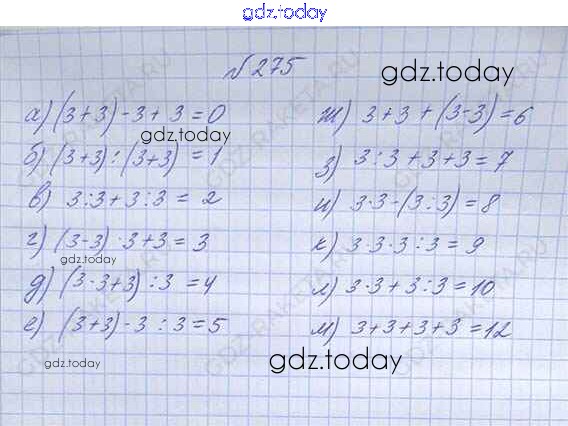 gdz.today
№275
gdz.today
а) (3+3)-3+3=0
ж) 3+3+(3-3)=6
gdz.today
б) (3+3):(3+3)=1
з) 3:3+3+3=7
в) 3:3+3:3=2
и) 3·3-(3:3)=8
г) (3-3)·3+3=3
к) 3·3·3:3=9
gdz.today
д) (3·3+3):3=4
л) 3·3+3:3=10
е) (3+3)-3:3=5
м) 3+3+3+3=12
gdz.today
gdz.today
GDZ-RAKETA.RU